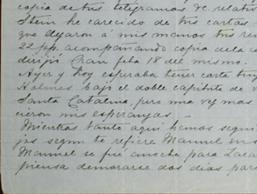 copia de tus telegramas &c relativ
Stein he carecido de tus cartas
que dejaron a mis manos tus re
22 ppp. acompañando copia de la co
dirijió Chan feba 18 del mismo.
Ayer y hoy esperaba tener carta tuy
Holmes bajo el doble capítulo de v
Santa Catalina, pero una vez mas
cieron mis esperanzas.
Mientras tanto aquí hemos segui
jos segun te refiere Manuel en s
Manuel se fué anoche para Laca
piensa demorarse dos días par